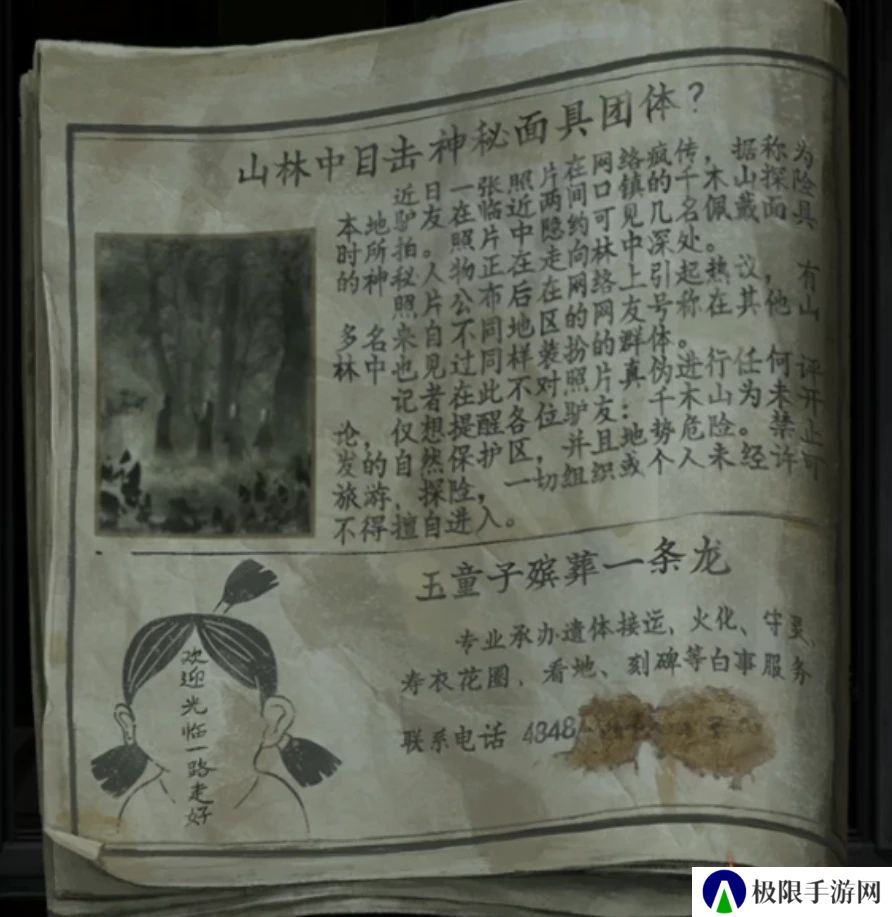 山林中目击神秘面具团体？
近日一张照片在网络疯传，据称为
本地驴友在临近两间口镇的千木山探险
时所拍。照片中隐约可见几名佩戴面具
的神秘人物正在走向林中深处。
照片公布后在网络上引起热议，有
多名来自不同地区的网友号称在其他山
林中也见过同样装扮的群体。
记者在此不对照片真伪进行任何评
论，仅想提醒各位驴友：千木山为未开
发的自然保护区，并且地势危险。禁止
旅游、探险，一切组织或个人未经许可
不得擅自进入。
玉童子殡葬一条龙
专业承办遗体接运、火化、守灵、
寿衣花圈、看地、刻碑等白事服务
联系电话 4848
欢迎光临一路走好
极限手游网